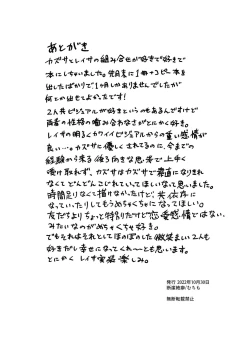 あとがき
カズサとレイサの組み合せが好きで好きで
本にしちゃいました。発行に1冊+コピー本を
出したばかりで1ヶ月しかありませんでしたが
何とか出せてよかったです!
2人共ビジュアルが好きというのもあるんですけど
両者の性格の噛み合わなさがとにかく好き。
レイサの明るくカワイイビジュアルからの重い感情が
良い…。カズサに優しくされてるのに、今までの
経験から来る後ろ向きな思考で上手く
受け取れず、カズサはカズサで素直になりきれ
なくてどんどんこじれていってほしいなって思いました。
時間足りなくて描けないんだけど、共依存に
なっていたりしてもうめちゃくちゃになってほしい。
友だちよりちょっと特別だけど恋愛感情ではない、
みたいなのがめちゃくちゃ好き。
でもそれはそれとしてほのぼのした微笑ましい2人も
好きだし幸せになってくれ〜とも思います。
とにかく レイサ実装 楽しみ。
発行 2022年10月30日
無断転載禁止